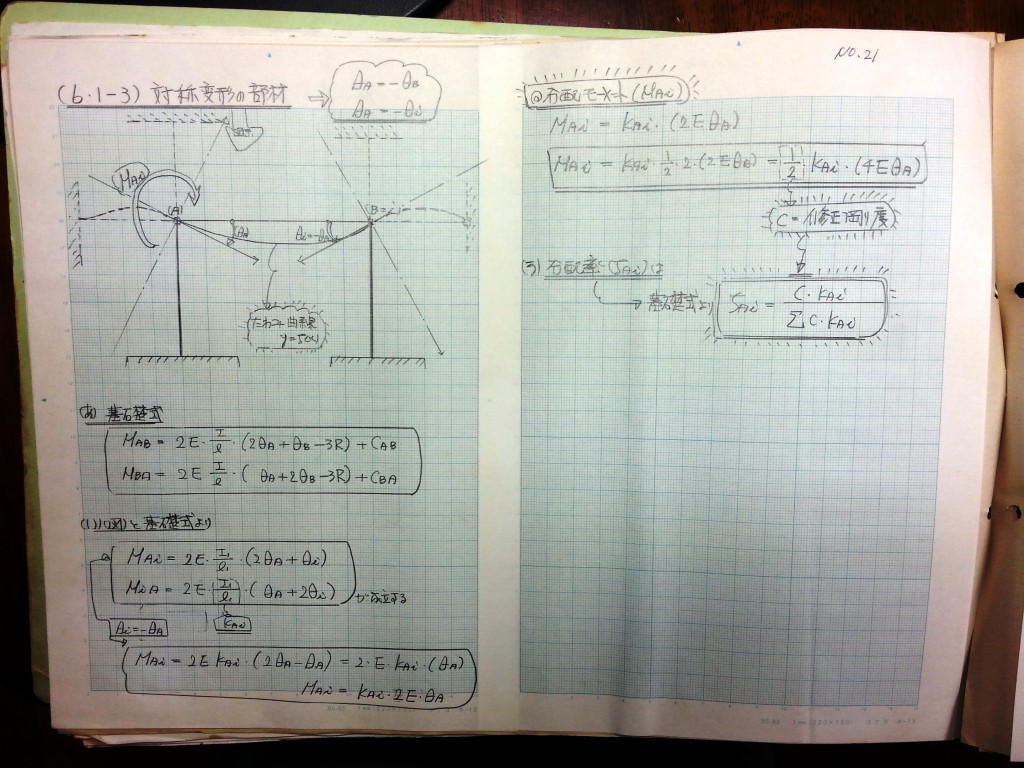 NO.21
(6・1-3) 対称変形の部材 ⇒
θA = -θB
θA = -θi
MAi
(A)
(B=i)
θA
θi=-θA
たわみ曲線
(あ) 基礎式
MAB = 2E・I/l・(2θA+θB-3R)+CAB
MBA = 2E・I/l・( θA+2θB-3R)+CBA
(い) (図)と基礎式より
MAi = 2E・Ii/li・(2θA+θi)
MiA = 2E・Ii/li・( θA+2θi) が成立する
θi=-θA
kAi
MAi = 2E kAi・(2θA-θA) = 2・E・kAi・(θA)
MAi = kAi・2E・θA
@分配モーメント(MAi)
MAi = kAi・(2EθA)
MAi = kAi・1/2・2・(2EθB) = 1/2 kAi・(4EθA)
C=修正剛度
(う) 分配率(ζAi)は
→ 基礎式より ζAi = C・kAi / ΣC・kAi